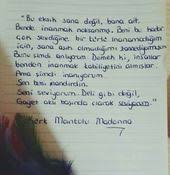 "Bu eksik sana değil, bana ait.
Bende inanmak noksanmış. Beni bu kadar
çok sevdiğine bir türlü inanamadığım
için, sana aşık olmadığımı zannediyormuşum
Bunu şimdi anlıyorum. Demek ki, insanlar
benden inanmak kabiliyetini almışlar.
Ama şimdi inanıyorum.
Sen beni inandırdın.
Seni seviyorum. Deli gibi değil,
Gayet aklı başında olarak seviyorum."
Kürk Mantolu Madonna